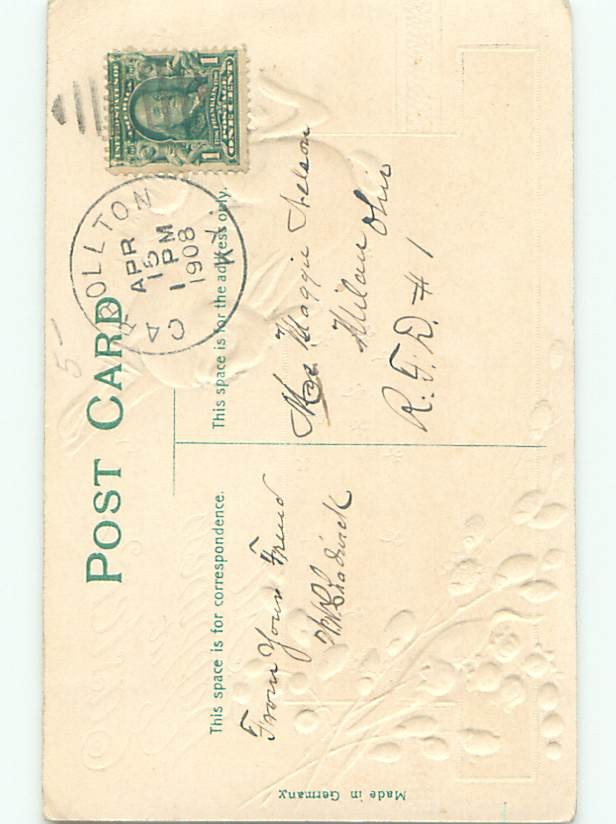 POST CARD
This space is for correspondence.
From Your Friend
This space is for the address only.
Maggie Nelson
Milan Ohio
R.F.D. # 1
CARROLLTON
APR
15
1 PM
1908
KY.
UNITED STATES OF AMERICA
1 1
FRANKLIN
POSTAGE
ONE CENT
5-
Made in Germany